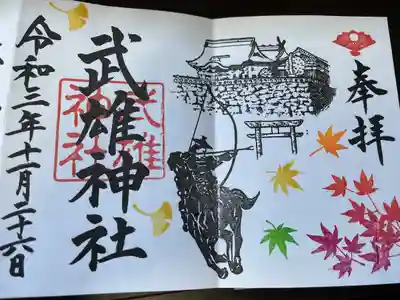 奉拝
武雄神社
武雄
神社
令和三年十一月二十六日